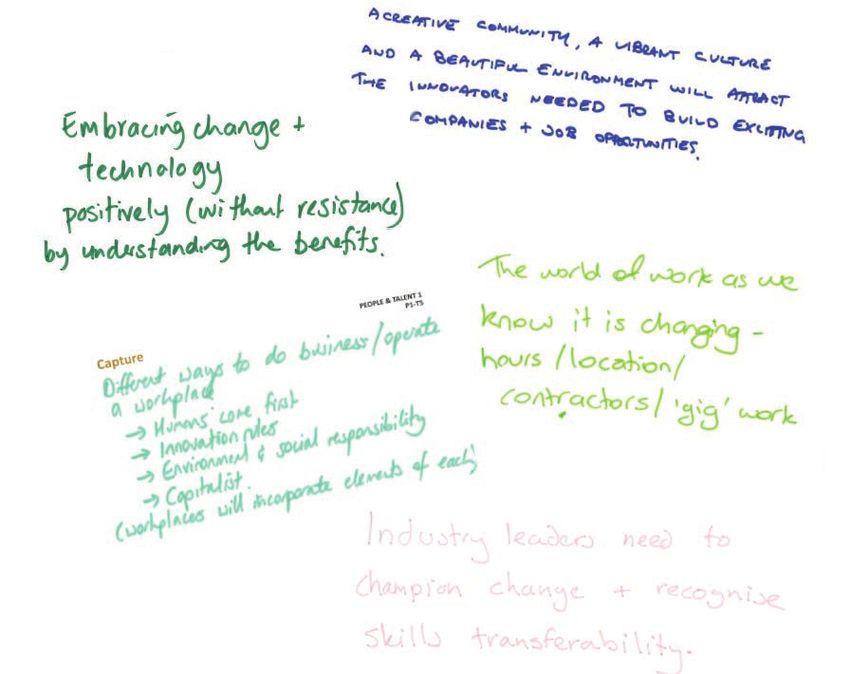 A CREATIVE COMMUNITY, A VIBRANT CULTURE
AND A BEAUTIFUL ENVIRONMENT WILL ATTRACT
THE INNOVATORS NEEDED TO BUILD EXCITING
COMPANIES + JOB OPPORTUNITIES.
Embracing change +
technology
positively (without resistance)
by understanding the benefits.
The world of work as we
know it is changing -
hours / location /
contractors / 'gig' work
PEOPLE & TALENT 1
P1-T5
Capture
Different ways to do business / operate
a workplace
→ Humans come first
→ Innovation rules
→ Environment & social responsibility
→ Capitalist.
(workplaces will incorporate elements of each)
Industry leaders need to
champion change + recognise
skills transferability.